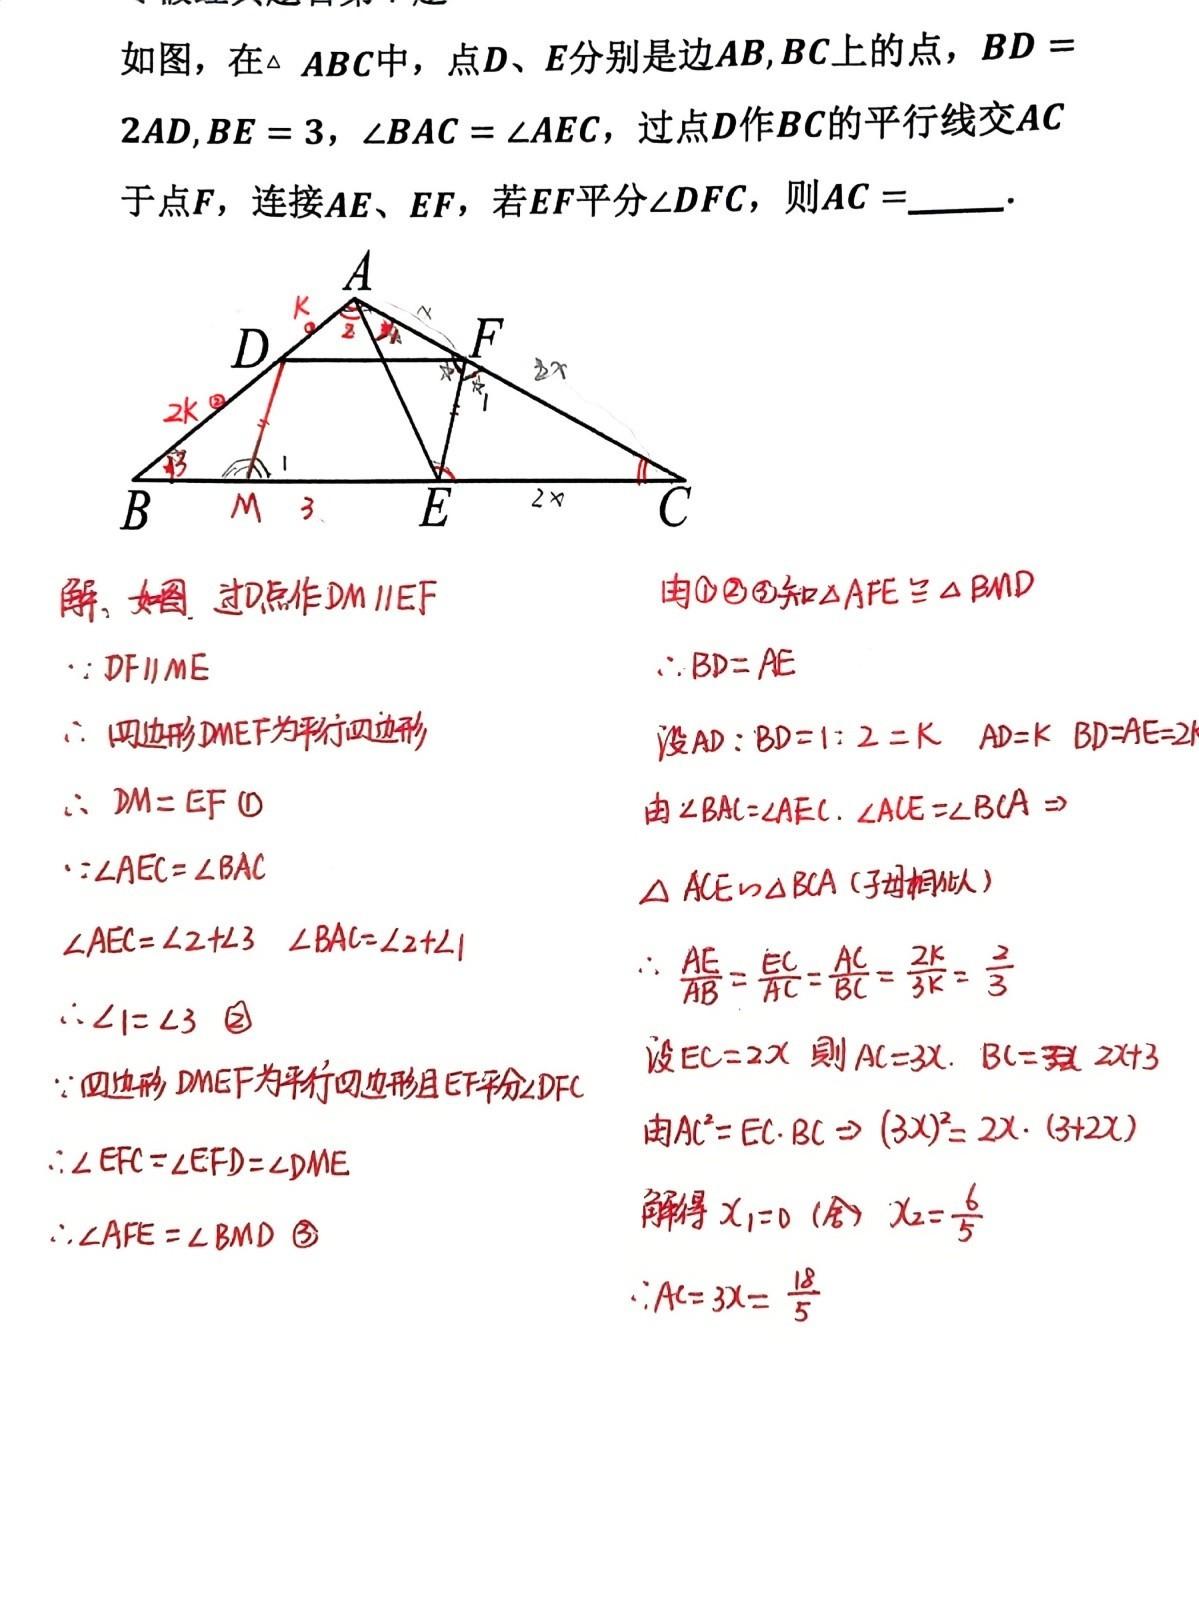 如图，在△ ABC中，点D、E分别是边AB,BC上的点，BD =
2AD,BE = 3，∠BAC = ∠AEC，过点D作BC的平行线交AC
于点F，连接AE、EF，若EF平分∠DFC，则AC =_____.
A
K
2
x
D
F
2x
2K ②
1
3
1
B
M
3
E
2x
C
解、如图 过D点作DM//EF
∵ DF//ME
∴ 四边形DMEF为平行四边形
∴ DM=EF ①
∵∠AEC=∠BAC
∠AEC=∠2+∠3 ∠BAC=∠2+∠1
∴∠1=∠3 ②
∵四边形DMEF为平行四边形且EF平分∠DFC
∴∠EFC=∠EFD=∠DME
∴∠AFE=∠BMD ③
由①②③知△AFE≌△BMD
∴BD=AE
设AD:BD=1:2=K AD=K BD=AE=2K
由∠BAC=∠AEC. ∠ACE=∠BCA ⇒
△ACE∽△BCA (子母相似)
∴ AE/AB = EC/AC = AC/BC = 2K/3K = 2/3
设EC=2x 则AC=3x. BC= 2x+3
由AC²=EC·BC ⇒ (3x)²=2x·(3+2x)
解得 x₁=0 (舍) x₂=6/5
∴AC=3x=18/5